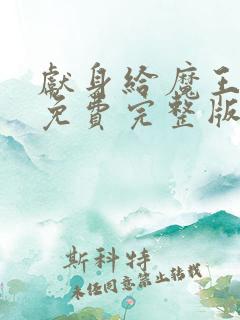 獻身給魔王
免費完整版
斯科特
未經同意禁止轉載